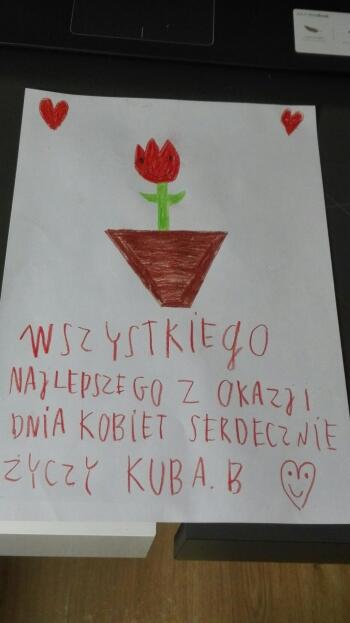 WSZYSTKIEgO
NAjLEPSZEGO Z OKAZjI
DNIA KOBIET SERDECZNIE
ŻYCZY KUBA.B